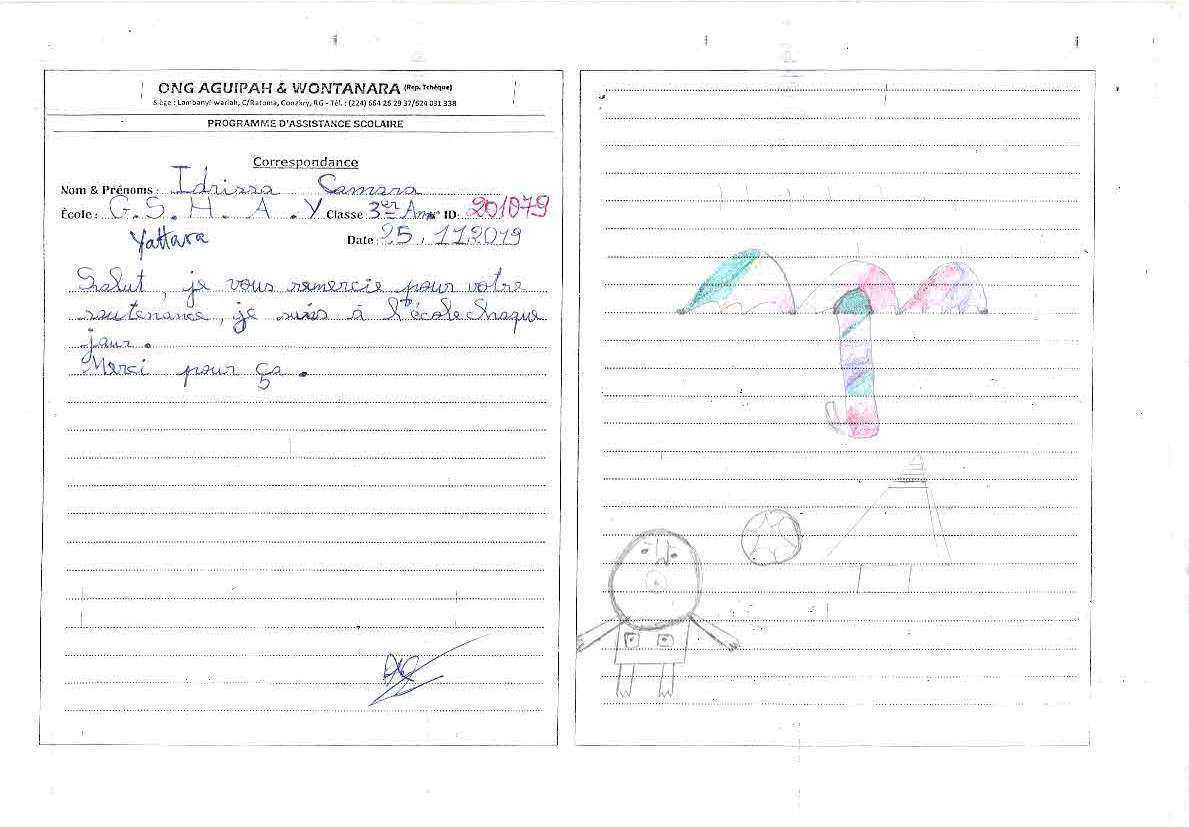 ONG AGUIPAH & WONTANARA (Rep. Tchèque)
Siège : Lambanyi wariah, C/Ratoma, Conakry, RG - Tél. : (224) 664 26 29 37/624 031 338
PROGRAMME D'ASSISTANCE SCOLAIRE
Correspondance
Nom & Prénoms : Idrissa Camara
École : G.S.H.A.Y Classe 3er An N° ID: 201079
Yattara Date : 25.11.2019
Salut, je vous remercie pour votre
soutenance, je suis à l'école chaque
jour.
Merci pour ça.